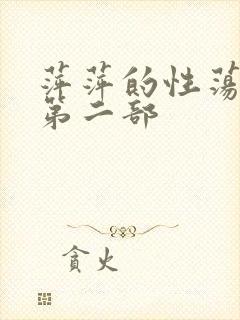 萍萍的性荡
第二部
贪火